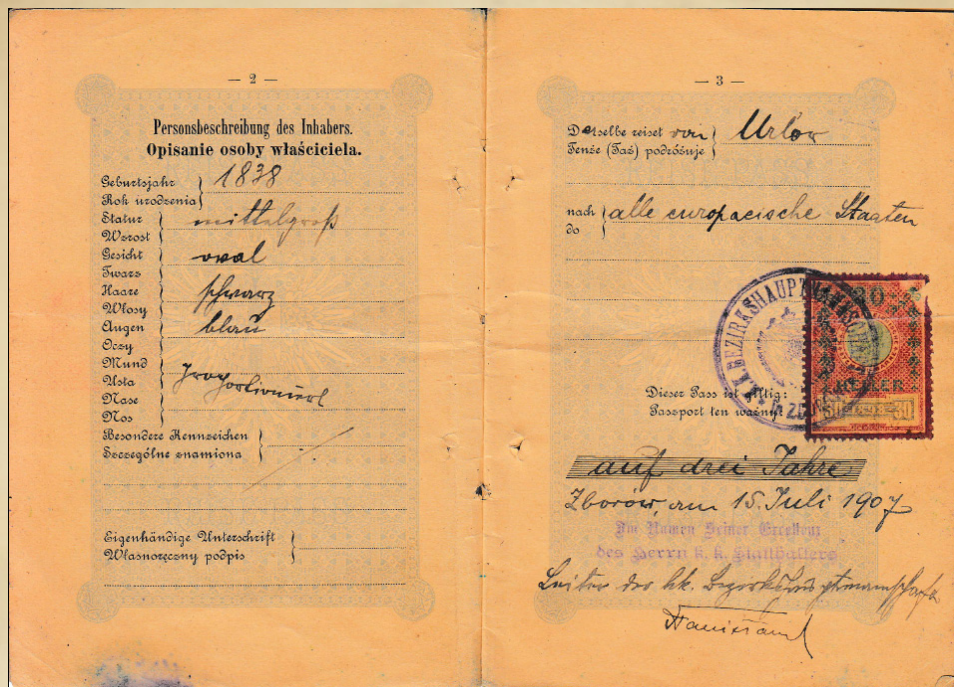 — 2 —
Personsbeschreibung des Inhabers.
Opisanie osoby właściciela.
Geburtsjahr
Rok urodzenia
1838
Statur
Wzrost
mittelgroß
Gesicht
Twarz
oval
Haare
Włosy
schwarz
Augen
Oczy
blau
Mund
Usta
Nase
Nos
proportioniert
Besondere Kennzeichen
Szczególne znamiona
Eigenhändige Unterschrift
Własnoręczny podpis
— 3 —
Derselbe reiset von
Tenże (Taż) podróżuje
Urlow
nach
do
alle europaeische Staaten
K.K. BEZIRKSHAUPTMANNSCHAFT
HELLER
30 1898 30
Dieser Pass ist giltig:
Paszport ten ważny
auf drei Jahre
Zborów, am 15. Juli 1907
Im Namen Seiner Exzellenz
des Herrn k. k. Statthalters
Leiter der kk. Bezirkshauptmannschaft